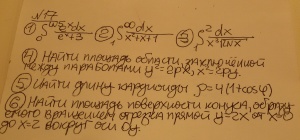 №17
① ∫₀ e^x dx / e^x+3 ② ∫₁^∞ dx / x²+x+1 ③ ∫₁² dx / x³√ln x
④ Найти площадь области, заключённой
между параболами y²=2px, x²=2py.
⑤ Найти длину кардиоиды ρ=4(1+cosφ)
⑥ Найти площадь поверхности конуса, образу-
ного вращением отрезка прямой y=2x от x=0
до x=2 вокруг оси Oy.